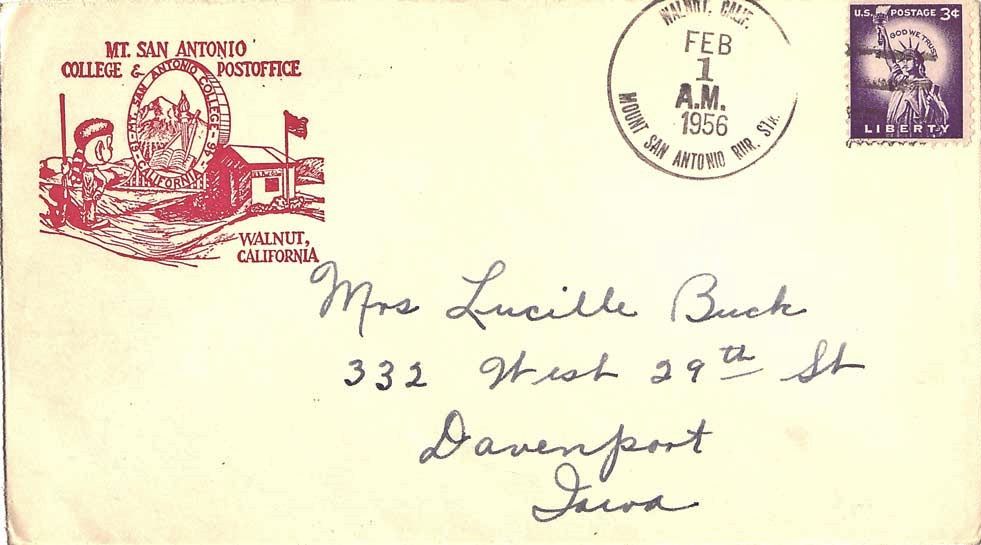 MT. SAN ANTONIO
COLLEGE & POSTOFFICE
MT. SAN ANTONIO COLLEGE
19 46
CALIFORNIA
WALNUT,
CALIFORNIA
WALNUT, CALIF.
FEB
1
A.M.
1956
MOUNT SAN ANTONIO RUR. STA.
U.S. POSTAGE 3¢
GOD WE TRUST
LIBERTY
Mrs Lucille Buck
332 West 29th St
Davenport
Iowa